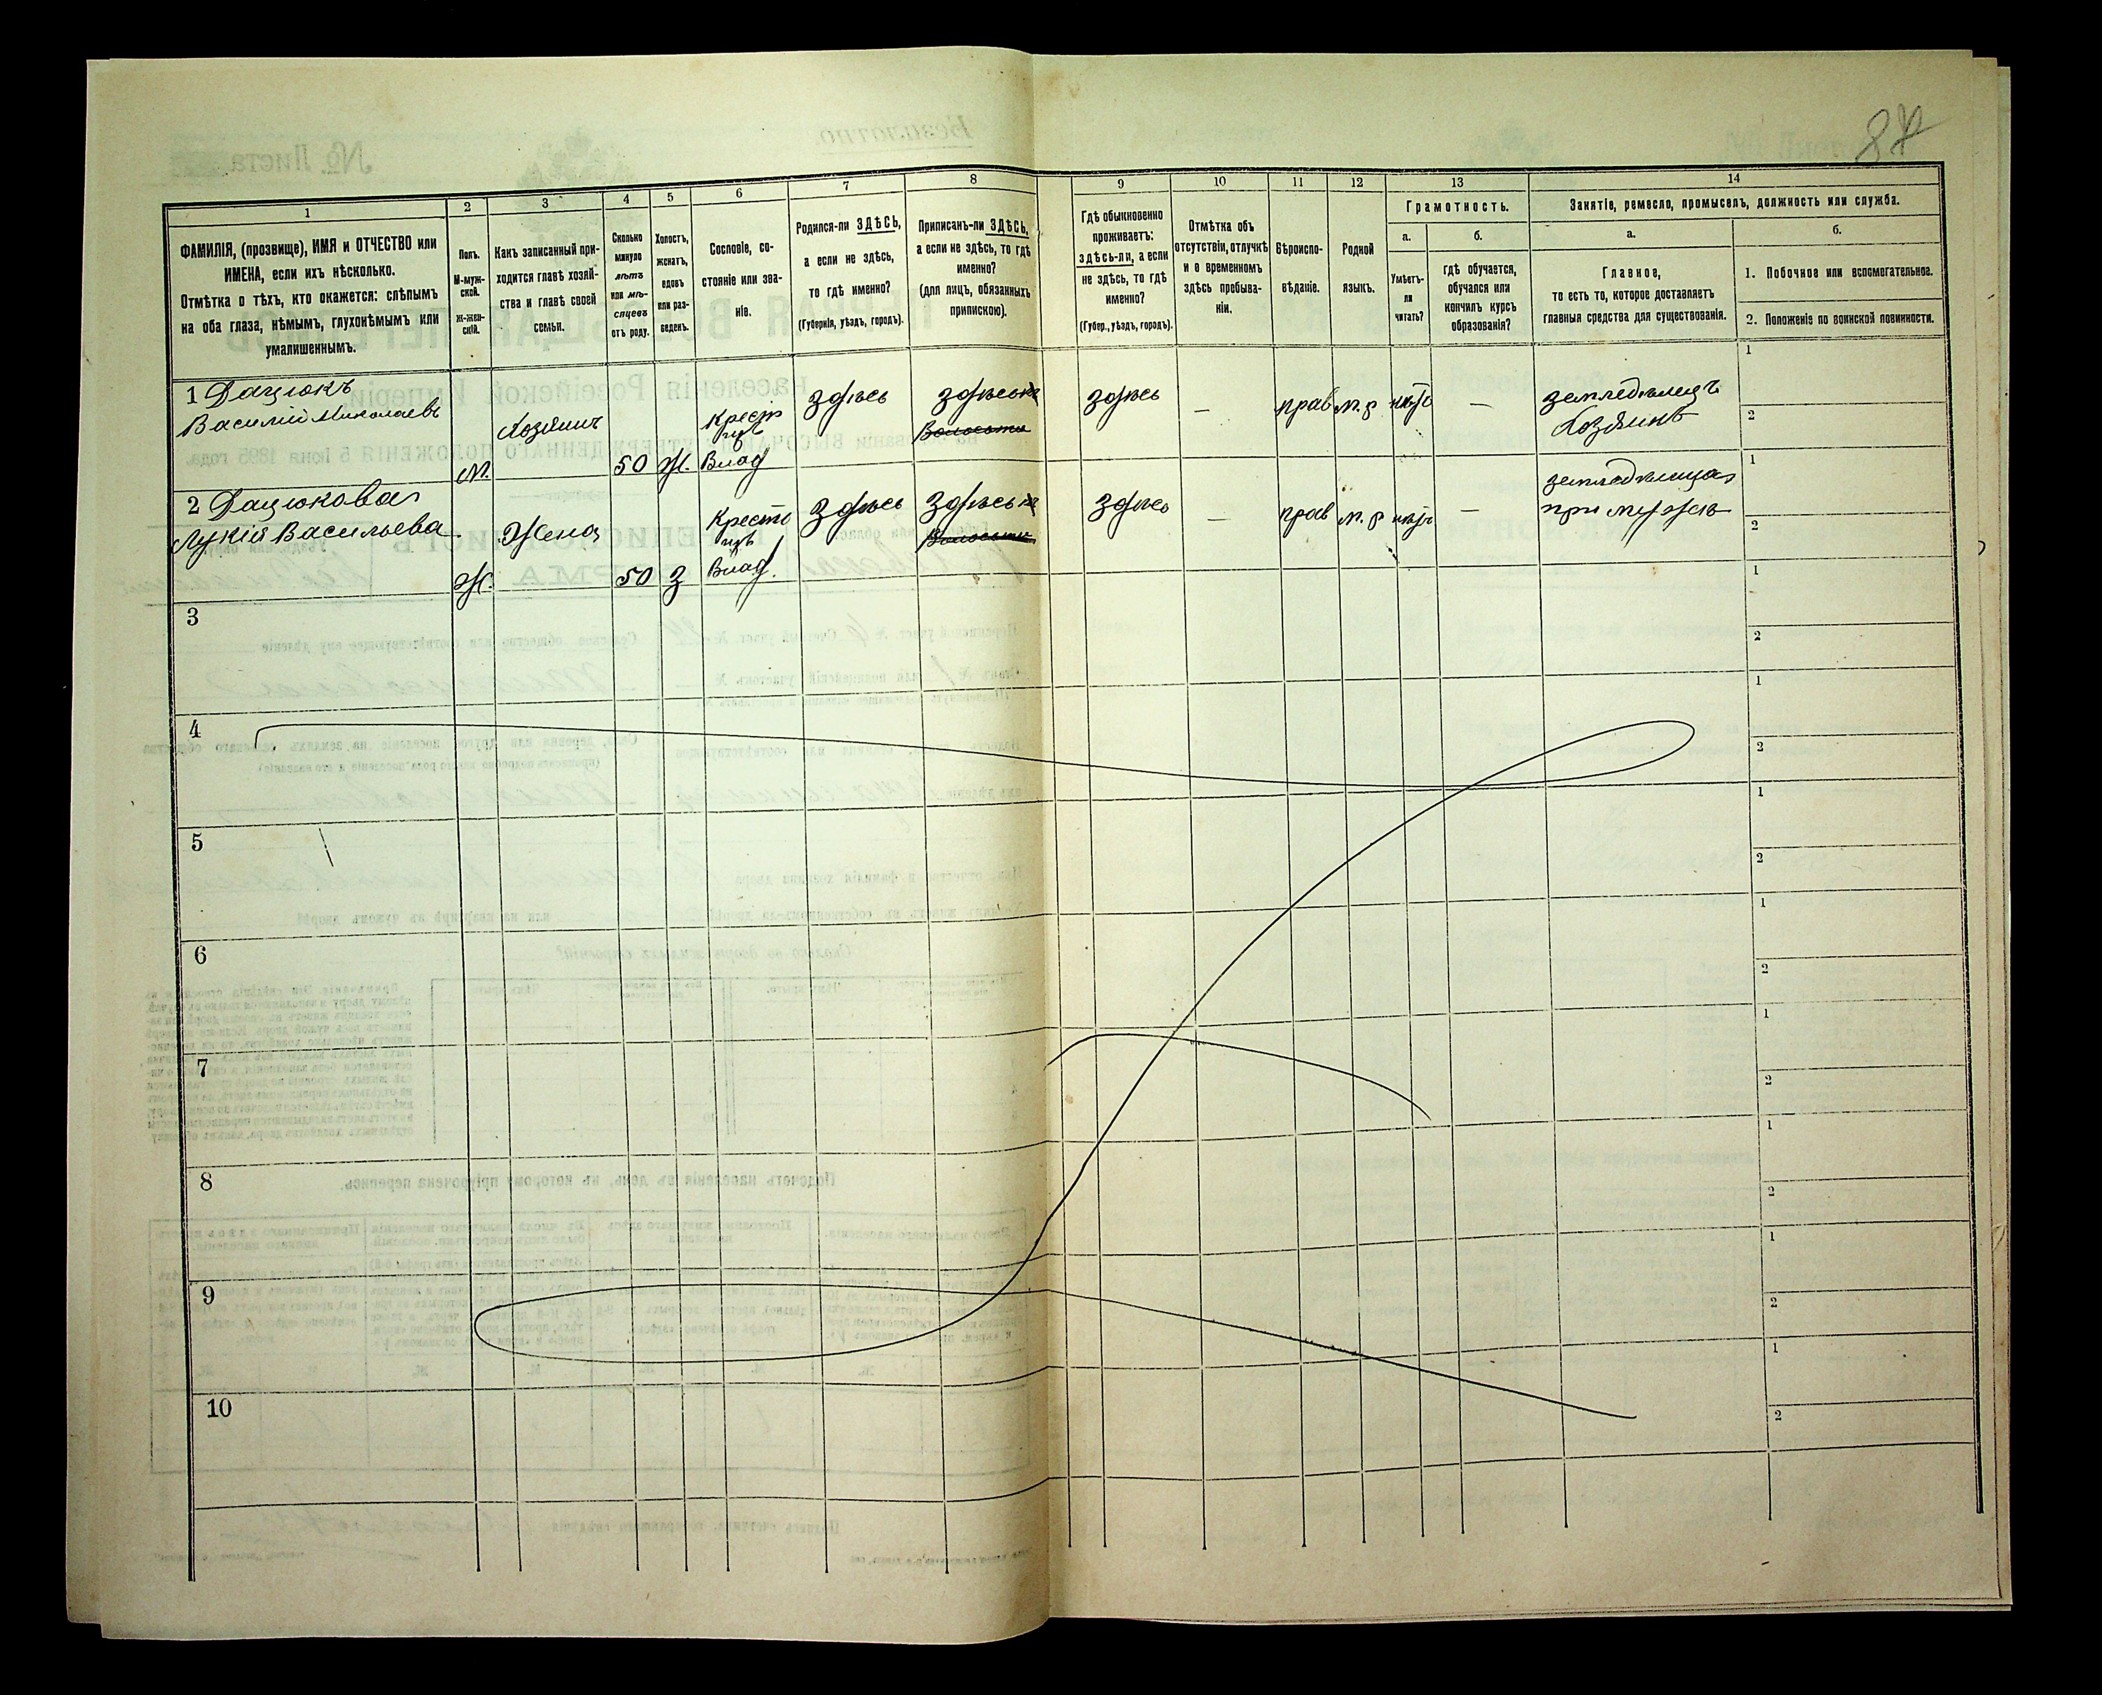 87
1
2
3
4
5
6
7
8
9
10
11
12
13
14
ФАМИЛІЯ, (прозвище), ИМЯ и ОТЧЕСТВО или
ИМЕНА, если ихъ нѣсколько.
Отмѣтка о тѣхъ, кто окажется: слѣпымъ
на оба глаза, нѣмымъ, глухонѣмымъ или
умалишеннымъ.
Полъ.
М-муж-
ской.
Ж-жен-
скій.
Какъ записанный при-
ходится главѣ хозяй-
ства и главѣ своей
семьи.
Сколько
минуло
лѣтъ
или мѣ-
сяцевъ
отъ роду.
Холостъ,
женатъ,
вдовъ
или раз-
веденъ.
Сословіе, со-
стояніе или зва-
ніе.
Родился-ли ЗДѢСЬ,
а если не здѣсь,
то гдѣ именно?
(Губернія, уѣздъ, городъ).
Приписанъ-ли ЗДѢСЬ,
а если не здѣсь, то гдѣ
именно?
(для лицъ, обязанныхъ
припискою).
Гдѣ обыкновенно
проживаетъ:
здѣсь-ли, а если
не здѣсь, то гдѣ
именно?
(Губер., уѣздъ, городъ).
Отмѣтка объ
отсутствіи, отлучкѣ
и о временномъ
здѣсь пребыва-
ніи.
Вѣроиспо-
вѣданіе.
Родной
языкъ.
Грамотность.
а.
Умѣетъ-
ли
читать?
б.
гдѣ обучается,
обучался или
кончилъ курсъ
образованія?
Занятіе, ремесло, промыселъ, должность или служба.
а.
Главное,
то есть то, которое доставляетъ
главныя средства для существованія.
б.
1. Побочное или вспомогательное.
2. Положеніе по воинской повинности.
1 Дацюкъ
Василій Николаевъ
М.
Хозяинъ
50
Ж.
Крест
изъ
Влад
здѣсь
здѣсь
здѣсь
—
прав
м.р
нѣтъ
—
земледѣлецъ
Хозяинъ
1
2
2 Дацюкова
Лукія Васильева
Ж.
Жена
50
З
Крест
изъ
Влад.
здѣсь
здѣсь
здѣсь
—
прав
м.р
нѣтъ
—
земледѣлица
при мужѣ
1
2
3
1
2
4
1
2
5
1
2
6
1
2
7
1
2
8
1
2
9
1
2
10
1
2